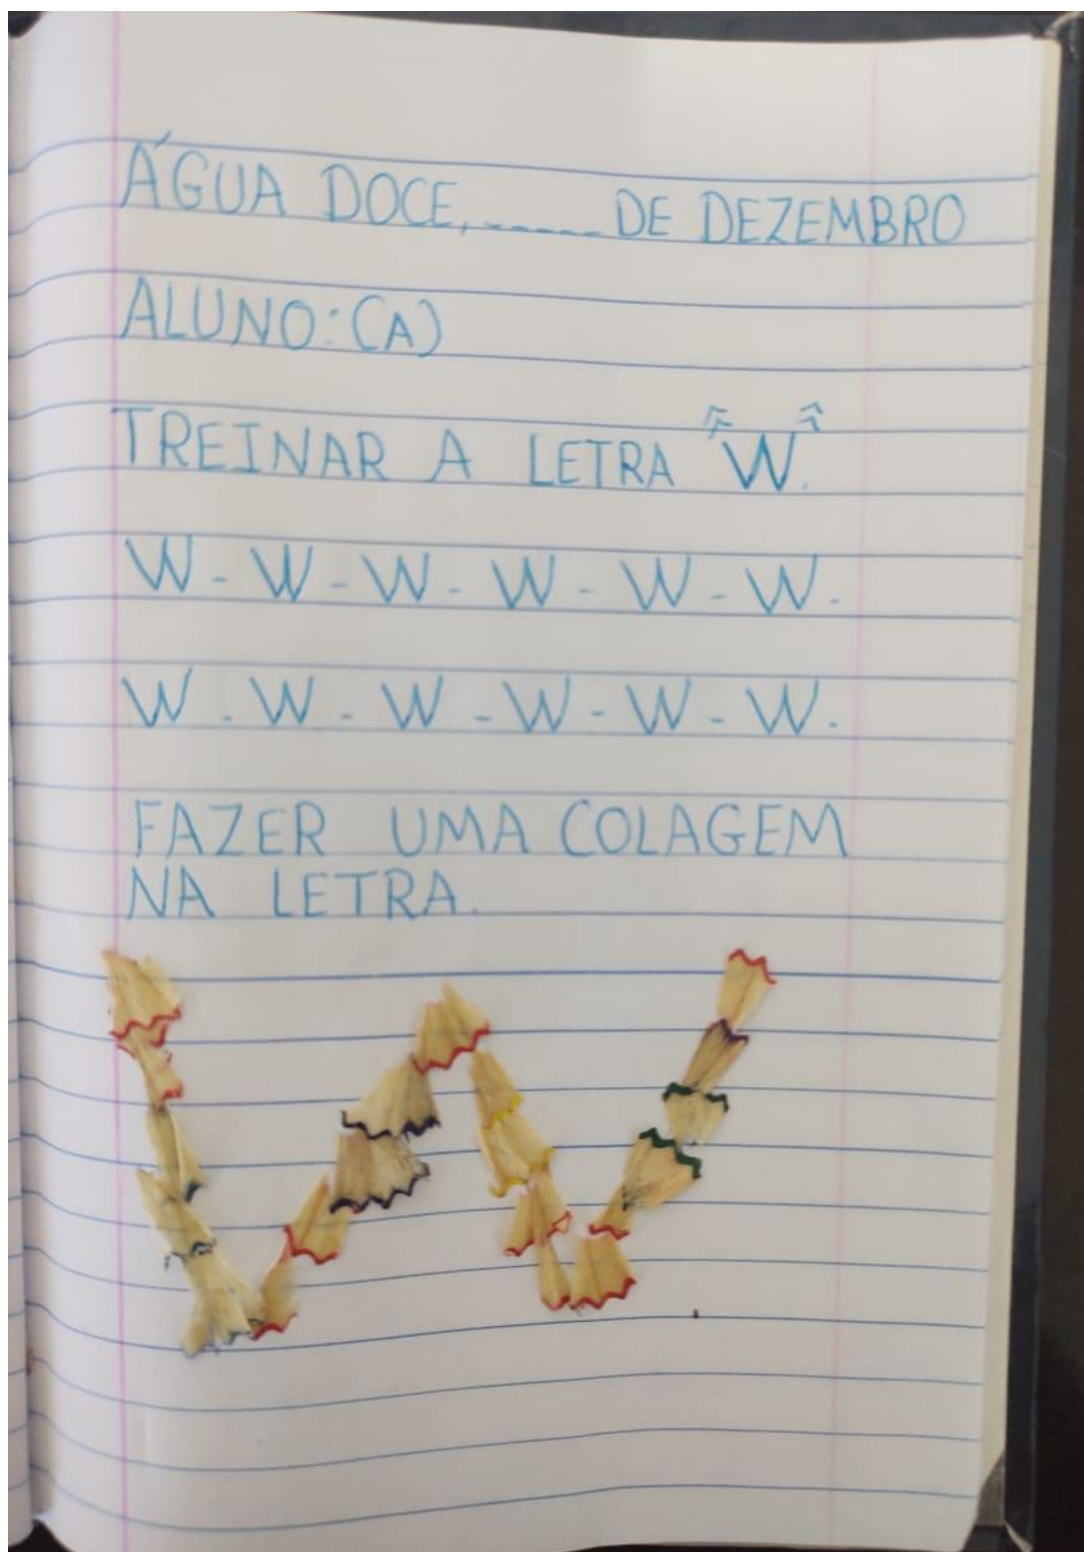 ÁGUA DOCE,----- DE DEZEMBRO
ALUNO:(A)
TREINAR A LETRA "W".
W - W - W - W - W - W.-
W - W - W - W - W - W.
FAZER UMA COLAGEM
NA LETRA.
W